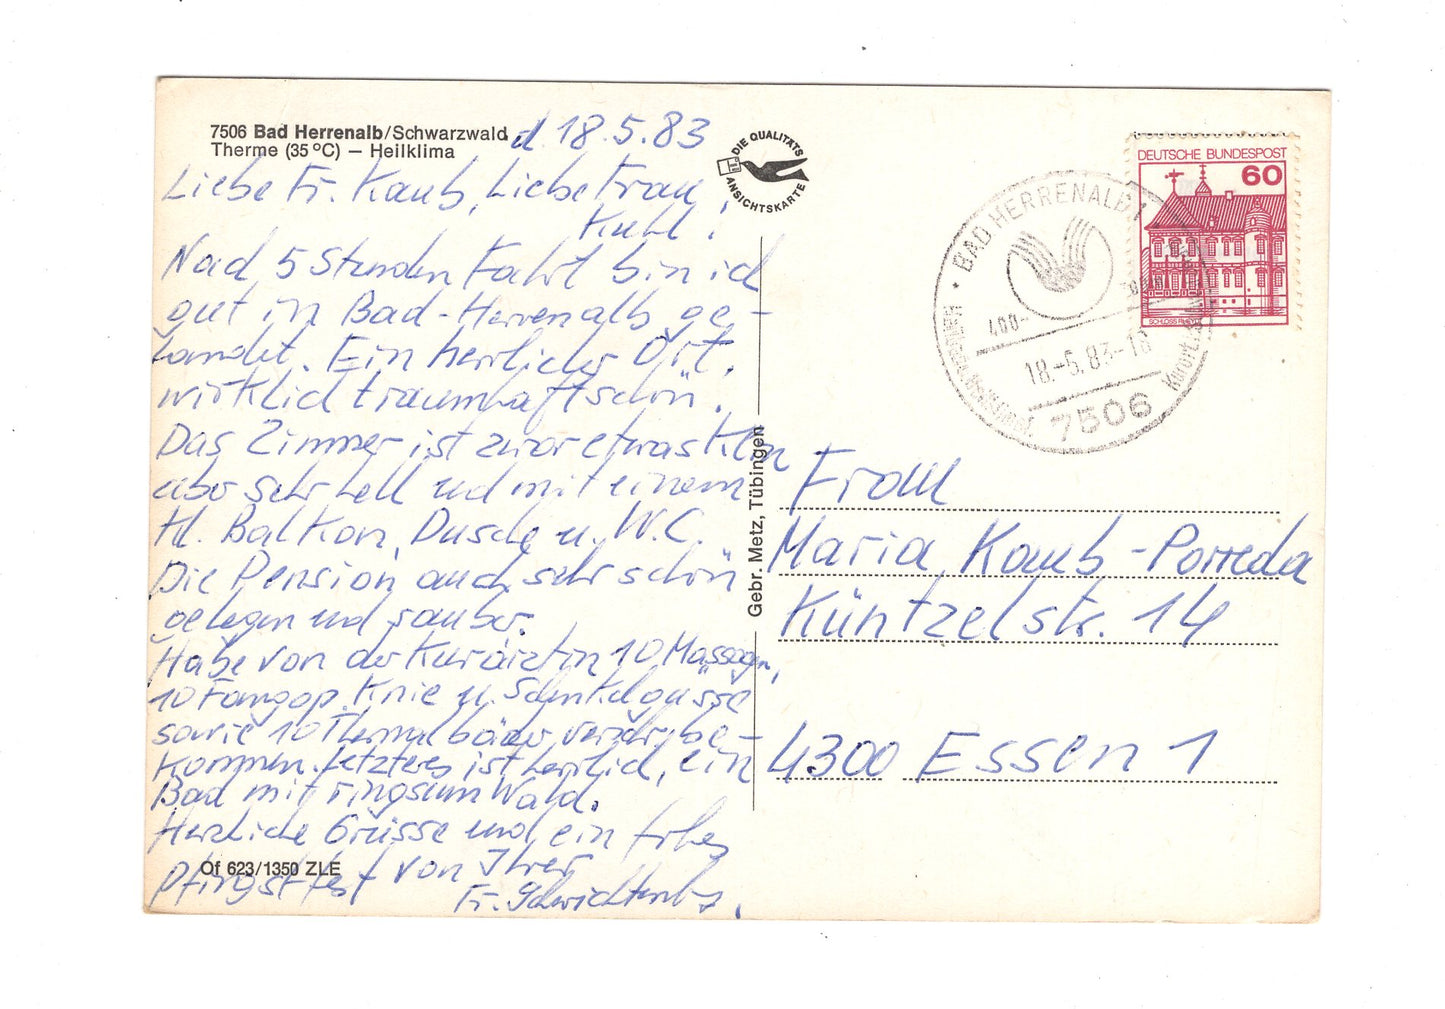 7506 Bad Herrenalb/Schwarzwald
Therme (35 °C) — Heilklima
d. 18.5.83
Liebe Fr. Kaub, Liebe Frau
Kuhl!
Nach 5 Stunden Fahrt bin ich
gut in Bad-Herrenalb ge-
landet. Ein herrlicher Ort,
wirklich traumhaft schön.
Das Zimmer ist zwar etwas klein
aber sehr hell und mit einem
kl. Balkon, Dusche u. W.C.
Die Pension auch sehr schön
gelegen und sauber.
Habe von der Kurärztin 10 Massagen,
10 Fangop. Knie u. Schenkelgüsse
sowie 10 Thermalbäder verschr. be-
kommen. Letzteres ist herrlich, ein
Bad mit ringsum Wald.
Herzliche Grüsse und ein frohes
Pfingstfest von Ihrer
Fr.
Of 623/1350 ZLE
DIE QUALITÄTS
ANSICHTSKARTE
Gebr. Metz, Tübingen
DEUTSCHE BUNDESPOST
60
BAD HERRENALB 1
400-
18.-5.83-18
7506
Frau
Maria Kaub-Porreda
Küntzelstr. 14
4300 Essen 1